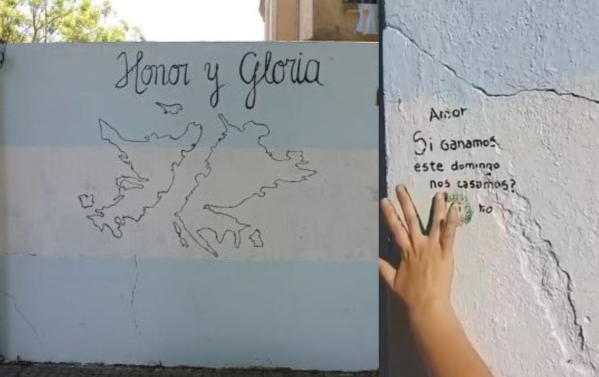 Honor y Gloria
Amor
Si Ganamos
este domingo
nos casamos?
no